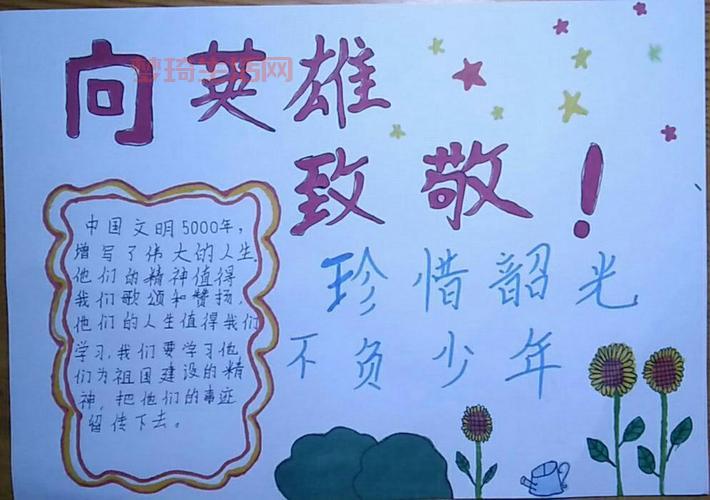 向英雄
致敬!
珍惜韶光
不负少年
中国文明5000年,
增写了伟大的人生.
他们的精神值得
我们歌颂和赞扬.
他们的人生值得我们
学习.我们要学习他
们为祖国建设的精
神,把他们的事迹
留传下去。